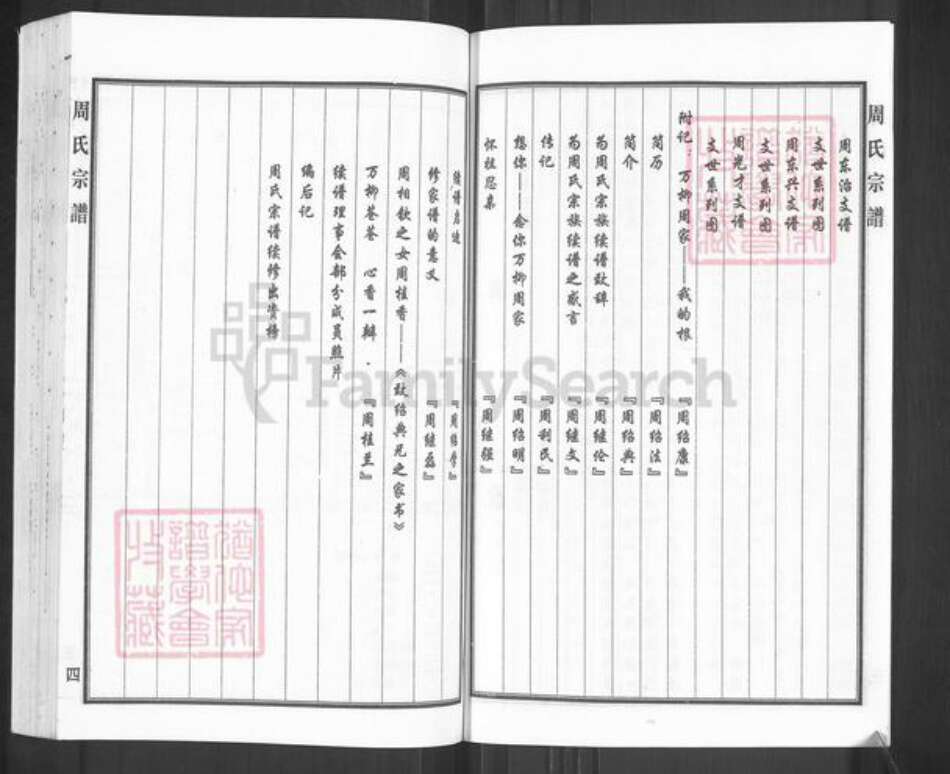 周氏宗譜
周东治支谱
支世系列图
周东兴支谱
支世系列图
周光才支谱
支世系列图
附记：万柳周家——我的根 『周绍康』
简历 『周绍法』
简介 『周绍典』
为周氏宗族续谱致辞 『周继伦』
为周氏宗族续谱之感言 『周继文』
传记 『周利民』
想你——念你万柳周家 『周绍明』
怀祖思亲 『周继强』
续谱启迪
修家谱的意义 『周继磊』
周相钦之女周桂香——《致绍典兄之家书》
万柳苍苍 心香一瓣 『周桂兰』
续谱理事会部分成员照片
编后记
周氏宗谱续修出资榜
周氏宗譜
四
譜學會
收藏
FamilySearch